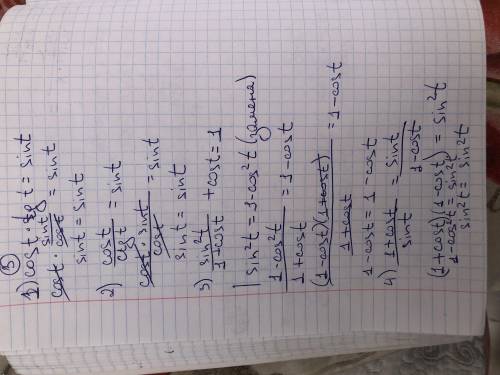 ③
1) cost · tg t = sint
cost · sint/cost = sint
sint = sint
2) cost/ctg t = sint
cost · sint/cost = sint
sint = sint
3) sin²t/1+cost + cost = 1
| sin²t = 1-cos²t (замена)
1-cos²t/1+cost = 1-cost
(1-cost)(1+cost)/1+cost = 1-cost
1-cost = 1-cost
4) 1+cost/sint = sint/1-cost
(1+cost)(1-cost) = sin²t
1-cos²t = sin²t
sin²t = sin²t